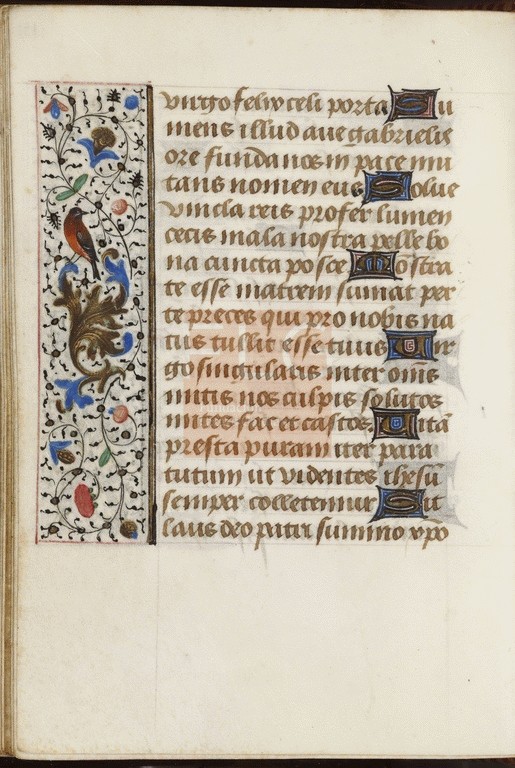 virgo felix celi porta Su
mens illud ave gabrielis
ore funda nos in pace mu
tans nomen eve Solve
vincla reis profer lumen
cecis mala nostra pelle bo
na cuncta posce Mostra
te esse matrem sumat per
te preces qui pro nobis na
tus tullit esse tuus Vir
go singularis inter om̄s
mitis nos culpis solutos
mites fac et castos Vitā
presta puram iter para
tutum ut videntes ihesū
semper colletemur Sit
laus deo patri summo xp̄o